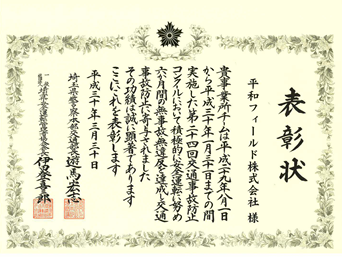 表彰状
平和フィールド株式会社 様
貴事業所チームは平成二十九年八月一日
から平成三十年一月三十一日までの間
実施した第二十四回交通事故防止
コンクールにおいて積極的に安全運転に努め
六か月間の無事故無違反を達成し交通
事故防止に寄与されました
その功績は誠に顕著であります
ここにこれを表彰します
平成三十年三月三十日
埼玉県警察本部交通部長